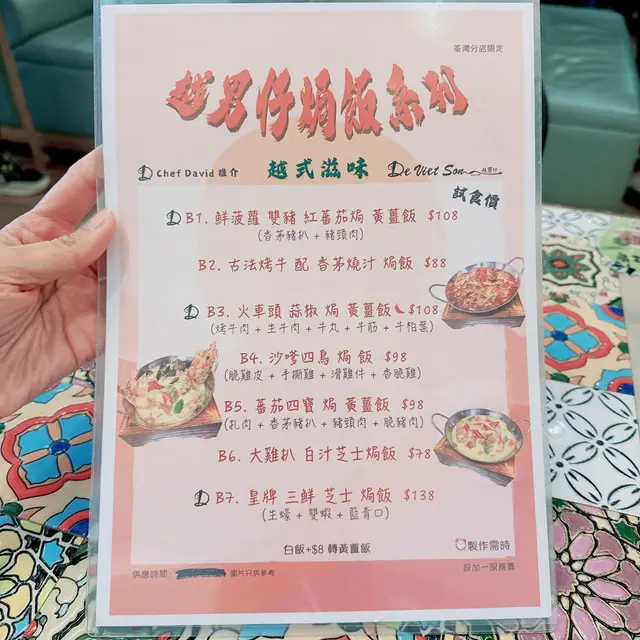 荃灣分店限定
越男仔焗飯系列
Chef David 推介
越式滋味
De Viet Son 越男仔
試食價
B1. 鮮菠蘿 雙豬 紅蕃茄焗 黃薑飯 $108
(香茅豬扒 + 豬頸肉)
B2. 古法烤牛 配 香茅燒汁 焗飯 $88
B3. 火車頭 蒜椒 焗 黃薑飯 $108
(烤牛肉 + 生牛肉 + 牛丸 + 牛筋 + 牛柏葉)
B4. 沙嗲四鳥 焗 飯 $98
(脆雞皮 + 手撕雞 + 滑雞件 + 香脆雞)
B5. 蕃茄四寶 焗 黃薑飯 $98
(扎肉 + 香茅豬扒 + 豬頸肉 + 脆豬肉)
B6. 大雞扒 白汁芝士焗飯 $78
B7. 皇牌 三鮮 芝士 焗飯 $138
(生蠔 + 雙蝦 + 藍青口)
白飯+$8 轉黃薑飯
製作需時
供應時間：
圖片只供參考
設加一服務費